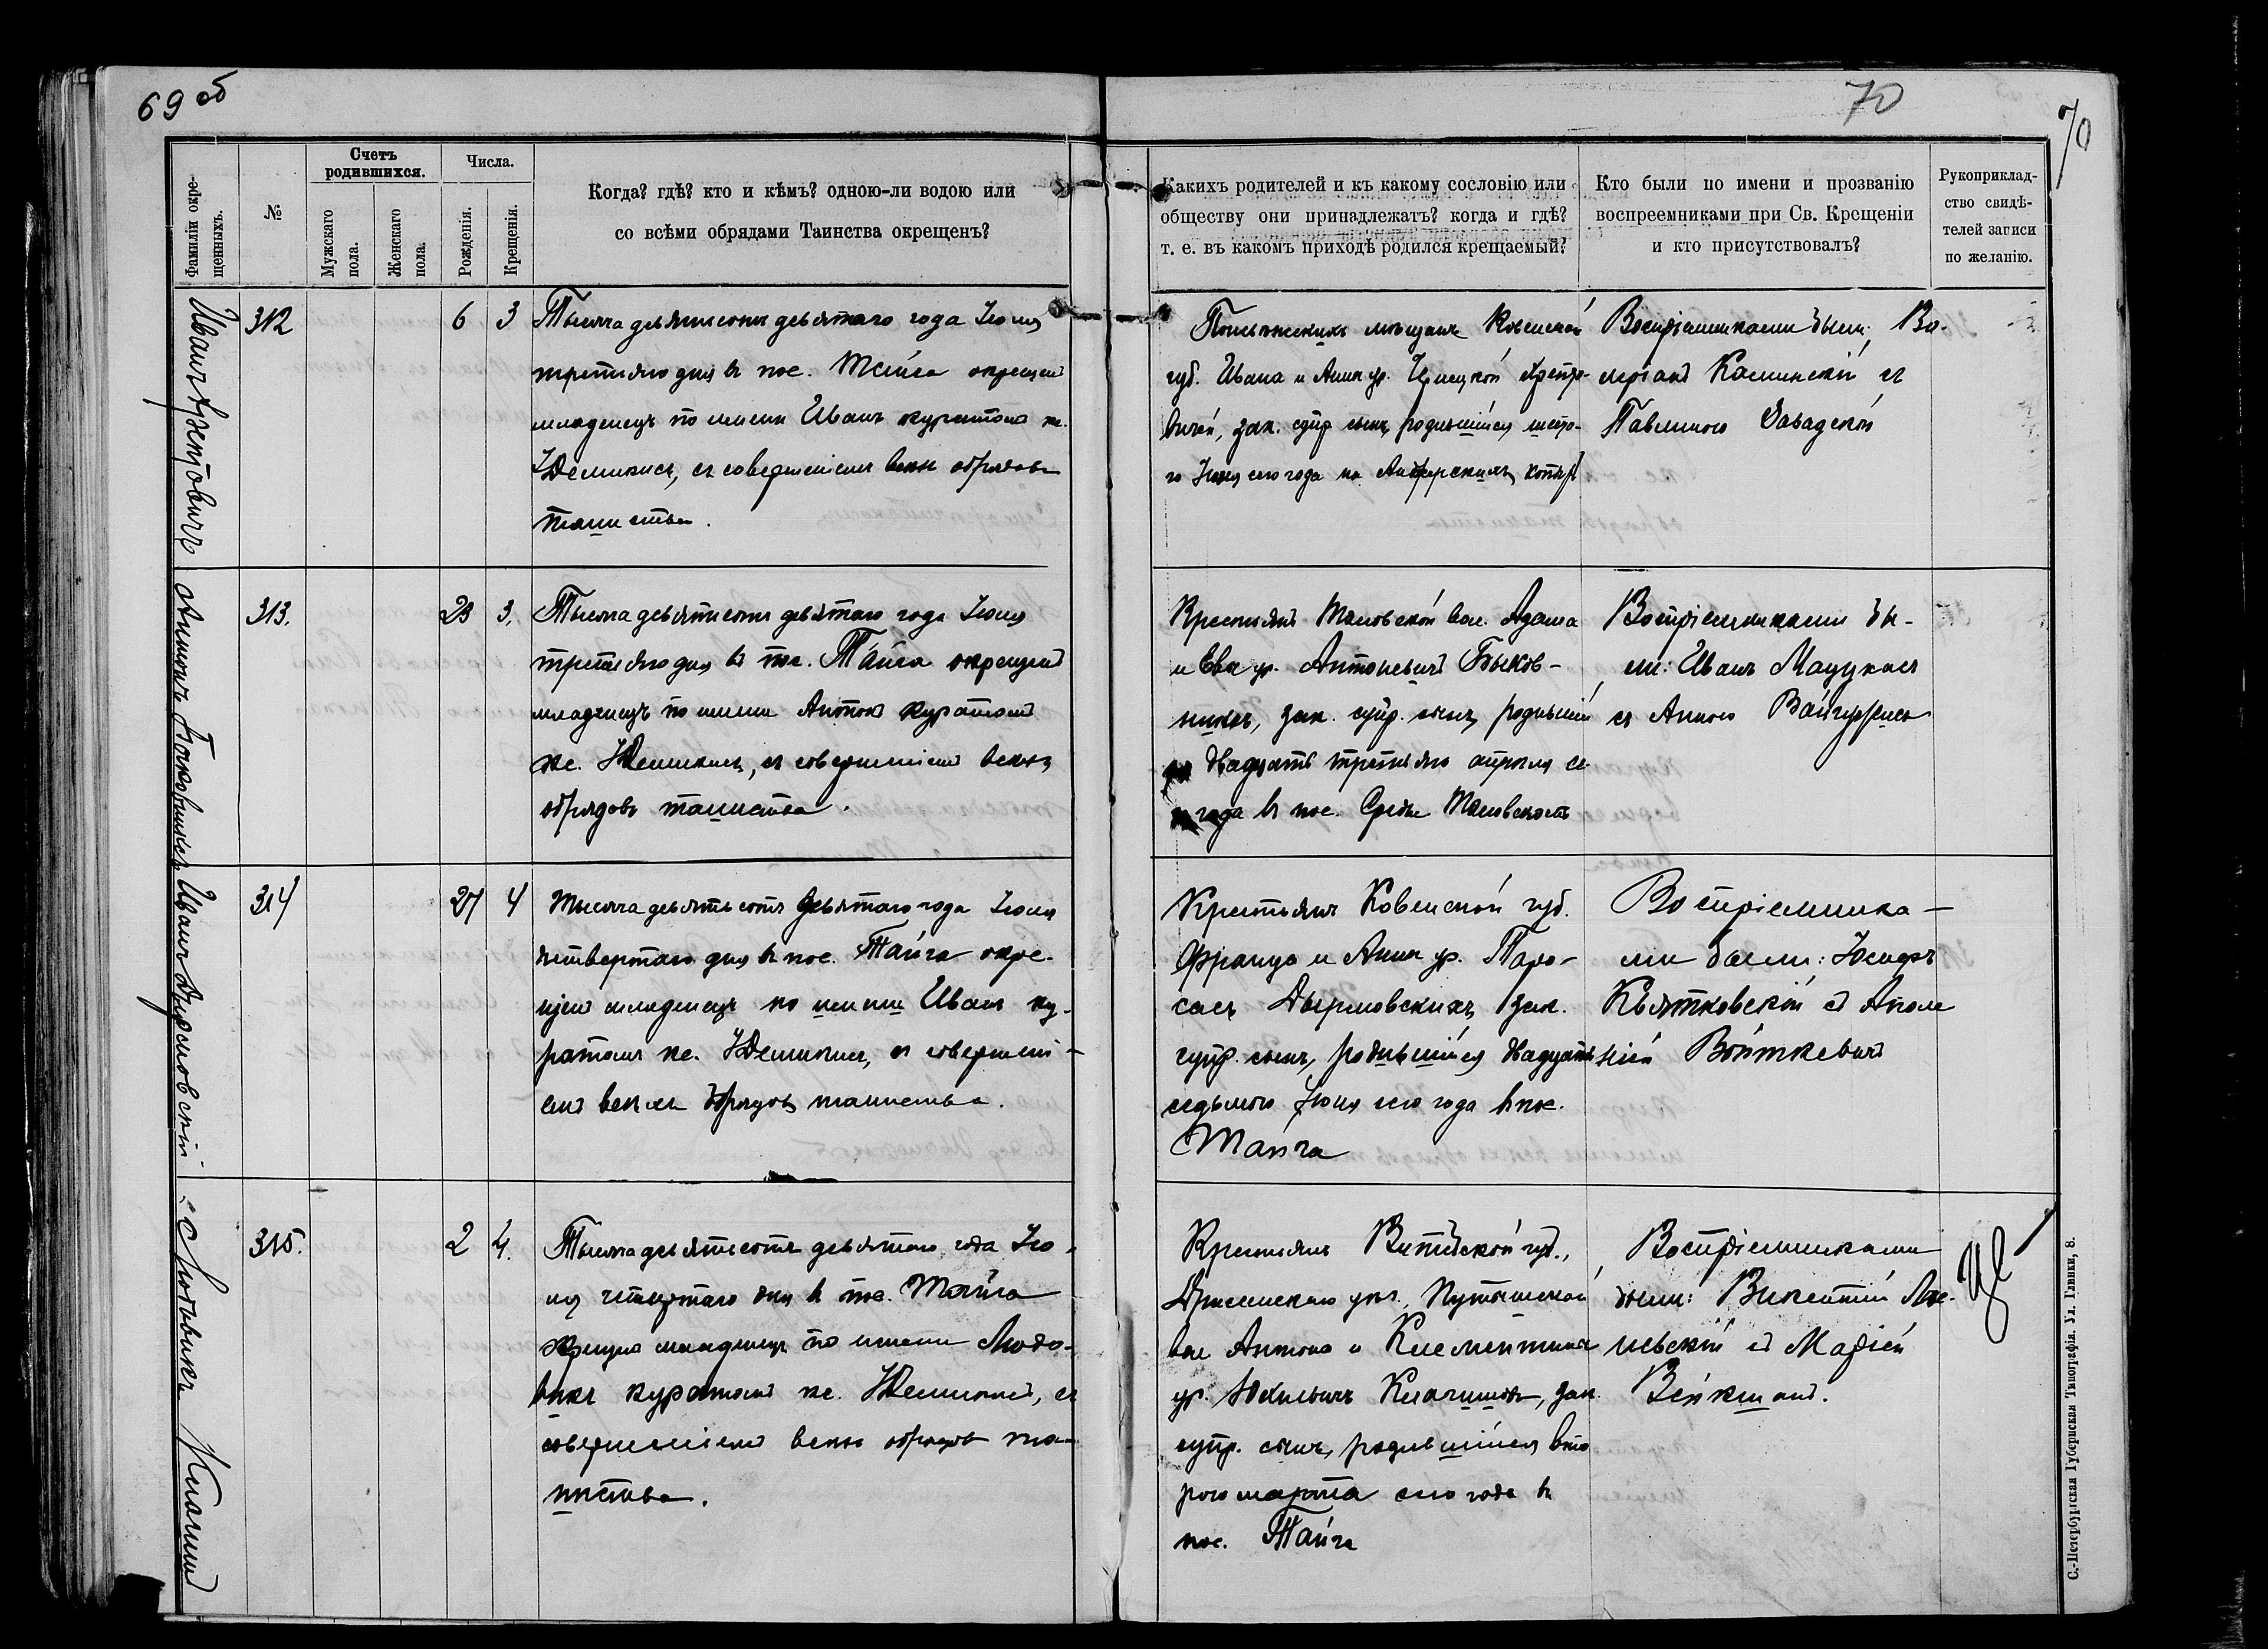 69 об
70
70
Фамиліи окре-
щенныхъ.
№
Счетъ
родившихся.
Мужскаго
пола.
Женскаго
пола.
Числа.
Рожденія.
Крещенія.
Когда? гдѣ? кто и кѣмъ? одною-ли водою или
со всѣми обрядами Таинства окрещенъ?
Какихъ родителей и къ какому сословію или
обществу они принадлежатъ? когда и гдѣ?
т. е. въ какомъ приходѣ родился крещаемый?
Кто были по имени и прозванію
воспреемниками при Св. Крещеніи
и кто присутствовалъ?
Рукоприклад-
ство свидѣ-
телей записи
по желанію.
Иванъ
312
6 3
Тысяча девятьсотъ девятаго года Іюля
третьяго дня въ пос. Тайга окрещенъ
младенецъ по имени Иванъ куратомъ кс.
съ совершеніемъ всѣхъ обрядовъ
таинства.
мѣщанъ Ковенской
губ. Ивана и Анны ур.
зак. супр. сынъ, родившійся шесто-
го сего года на Анжерскихъ копяхъ
Воспріемниками были: Ва-
леріанъ Каминскій съ
Павлиною Завадской
Антонъ
313.
23 3.
Тысяча девятьсотъ девятаго года Іюля
третьяго дня въ пос. Тайга окрещенъ
младенецъ по имени Антонъ куратомъ
кс. съ совершеніемъ всѣхъ
обрядовъ таинства.
Крестьянъ вол. Адама
и Евы ур. Антоневичъ
зак. супр. сынъ, родившійся
двадцать третьяго апрѣля се-
го года въ пос.
Воспріемниками бы-
ли: Иванъ Мацукасъ
съ Анною
Иванъ Дырмовскій
314
27 4
Тысяча девятьсотъ девятаго года Іюля
четвертаго дня въ пос. Тайга окре-
щенъ младенецъ по имени Иванъ ку-
ратомъ кс. съ совершені-
емъ всѣхъ обрядовъ таинства.
Крестьянъ Ковенской губ.
Франца и Анны ур.
Дырмовскихъ, зак.
супр. сынъ, родившійся двадцать
седьмого Іюня сего года въ пос.
Тайга
Воспріемника-
ми были: Іосифъ
Квятковскій съ Аполо
ніей Войткевичъ
Людвикъ
315.
2 4.
Тысяча девятьсотъ девятаго года Ію-
ля четвертаго дня въ пос. Тайга
окрещенъ младенецъ по имени Людо-
викъ куратомъ кс. съ
совершеніемъ всѣхъ обрядовъ та-
инства.
Крестьянъ Витебской губ.,
Дриссенскаго уѣз.
вол. Антона и Клементины
ур. зак.
супр. сынъ, родившійся вто
рого марта сего года въ
пос. Тайга
Воспріемниками
были: Викентій
съ Маріей
Вейкшанъ.
С.-Петербургская Губернская Типографія. Ул. Глинки, 8.